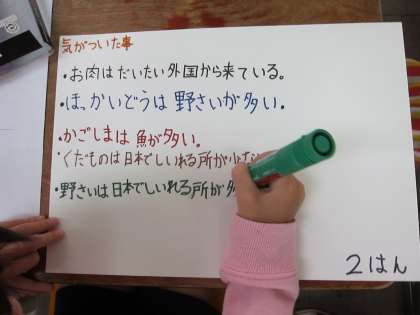 気がついた事
・お肉はだいたい外国から来ている。
・ほっかいどうは野さいが多い。
・かごしまは魚が多い。
・くだものは日本でしいれる所が少な
・野さいは日本でしいれる所が
2はん